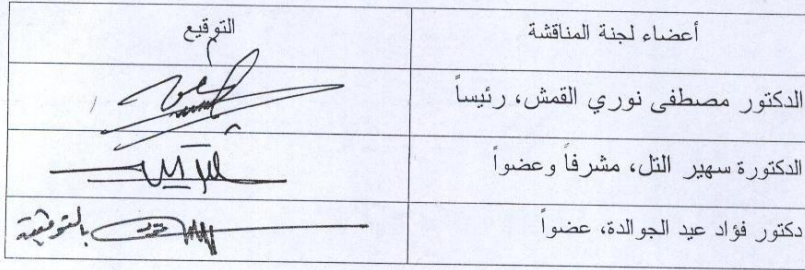 أعضاء لجنة المناقشة
التوقيع
الدكتور مصطفى نوري القمش، رئيساً
الدكتورة سهير التل، مشرفاً وعضواً
دكتور فؤاد عيد الجوالدة، عضواً